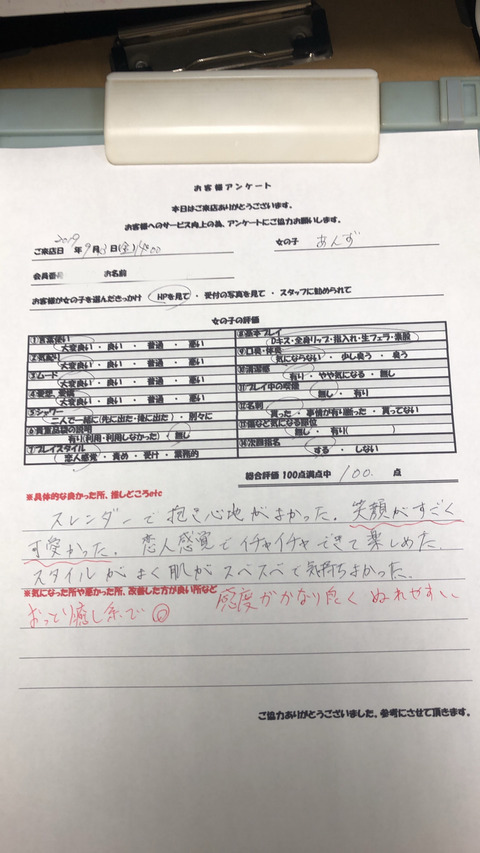 お客様アンケート
本日はご来店ありがとうございます。
お客様へのサービス向上の為、アンケートにご協力お願いします。
ご来店日 2019 年 9月 日(金) 女の子 あんず
会員番号 お名前
お客様が女の子を選んださっかけ HPを見て ・ 受付の写真を見て ・ スタッフに勧められて
女の子の評価
①言葉使い ⑧基本プレイ
大変良い ・ 良い ・ 普通 ・ 悪い Dキス・全身リップ・指入れ・生フェラ・素股
②気配り ⑨口臭・体臭
大変良い ・ 良い ・ 普通 ・ 悪い 気にならない ・ 少し臭う ・ 臭う
③ムード ⑩清潔感
大変良い ・ 良い ・ 普通 ・ 悪い 有り ・ やや気になる ・ 無し
④愛想、愛嬌 ⑪プレイ中の喫煙
大変良い ・ 良い ・ 普通 ・ 悪い 無し ・ 有り
⑤シャワー ⑫名刺
二人で一緒に(先に出た・後に出た) ・ 別々に 貰った ・ 事情が有り断った ・ 貰ってない
⑥貴重品袋の説明 ⑬傷など気になる部位
有り(利用・利用しなかった) ・ 無し 無し ・ 有り( )
⑦プレイスタイル ⑭次回指名
恋人感覚 ・ 責め ・ 受け ・ 業務的 する ・ しない
総合評価 100点満点中 100. 点
※具体的な良かった所、推しどころetc
スレンダーで抱き心地がよかった。笑顔がすごく
可愛かった。恋人感覚でイチャイチャできて楽しめた。
スタイルがよく肌がスベスベで気持ちよかった。
※気になった所や悪かった所、改善した方が良い所など 感度がかなり良く ぬれやすい
おっとり癒し系で◎
ご協力ありがとうございました、参考にさせて頂きます。